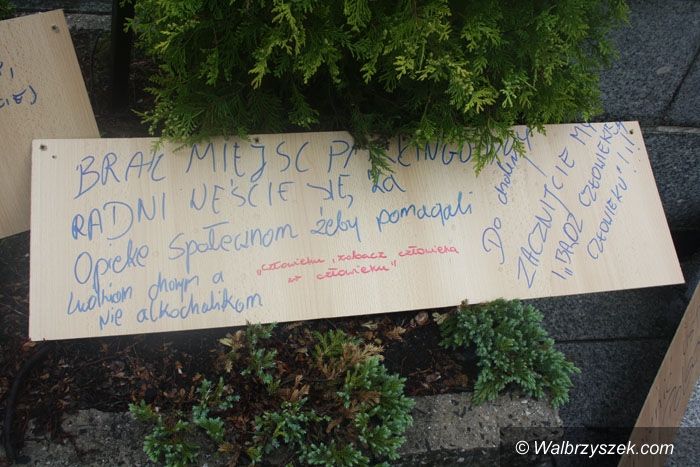 BRAK MIEJSC PARKINGOWYCH
RADNI WEŚCIE SIĘ ZA
Opieke Społecznom żeby pomagali
Ludniom chorym a
nie alkochalikom
"człowieku, zobacz człowieka
w człowieku"
Do cholery
ZACZNIJCIE MY
"BROZ CZŁOWIEKU
CZŁOWIEKU"!!!
CIE)
© Walbrzyszek.com